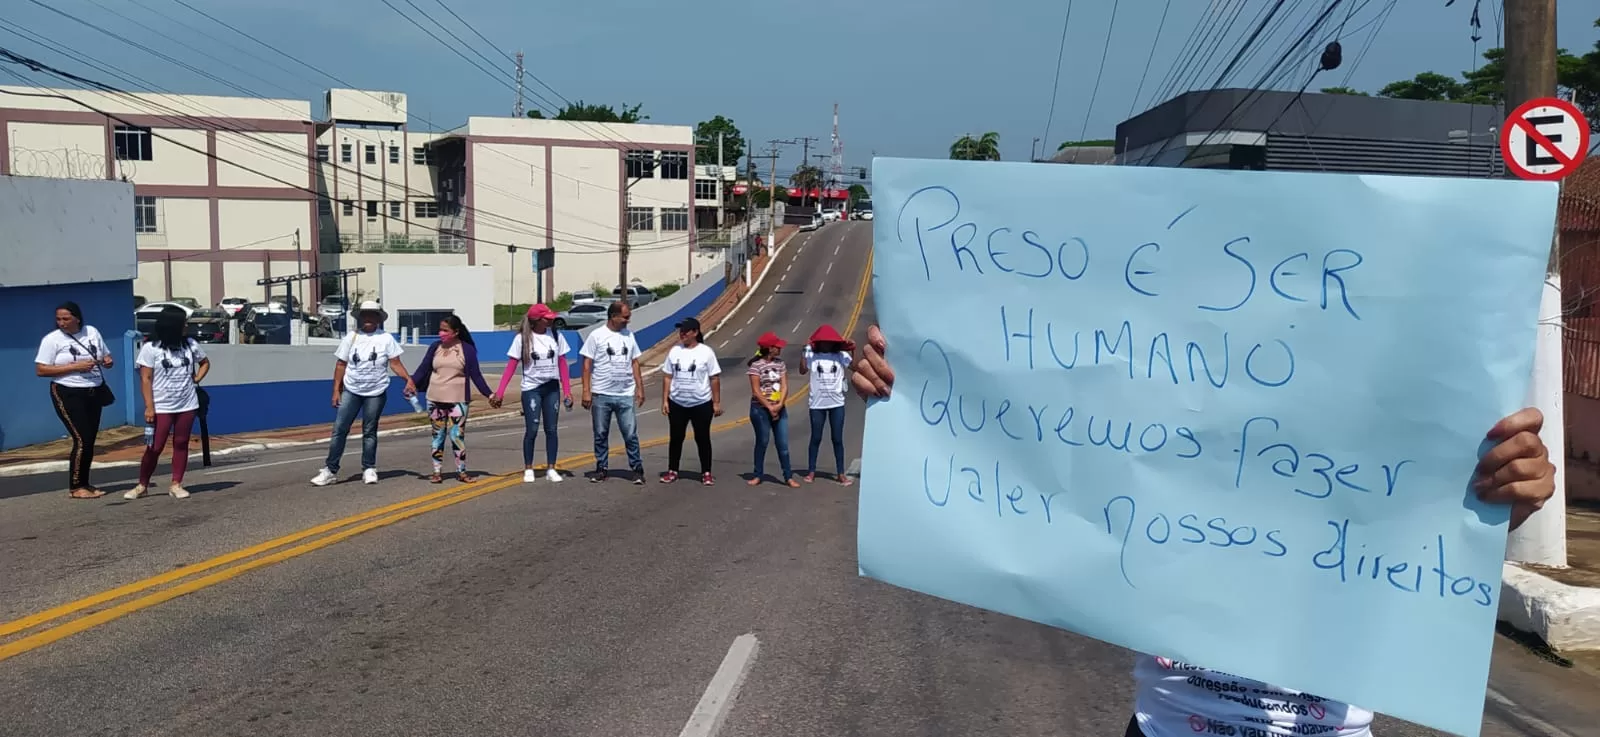 PRESO É SER
HUMANO
Queremos fazer
valer nossos direitos
E
reeducandos
Não